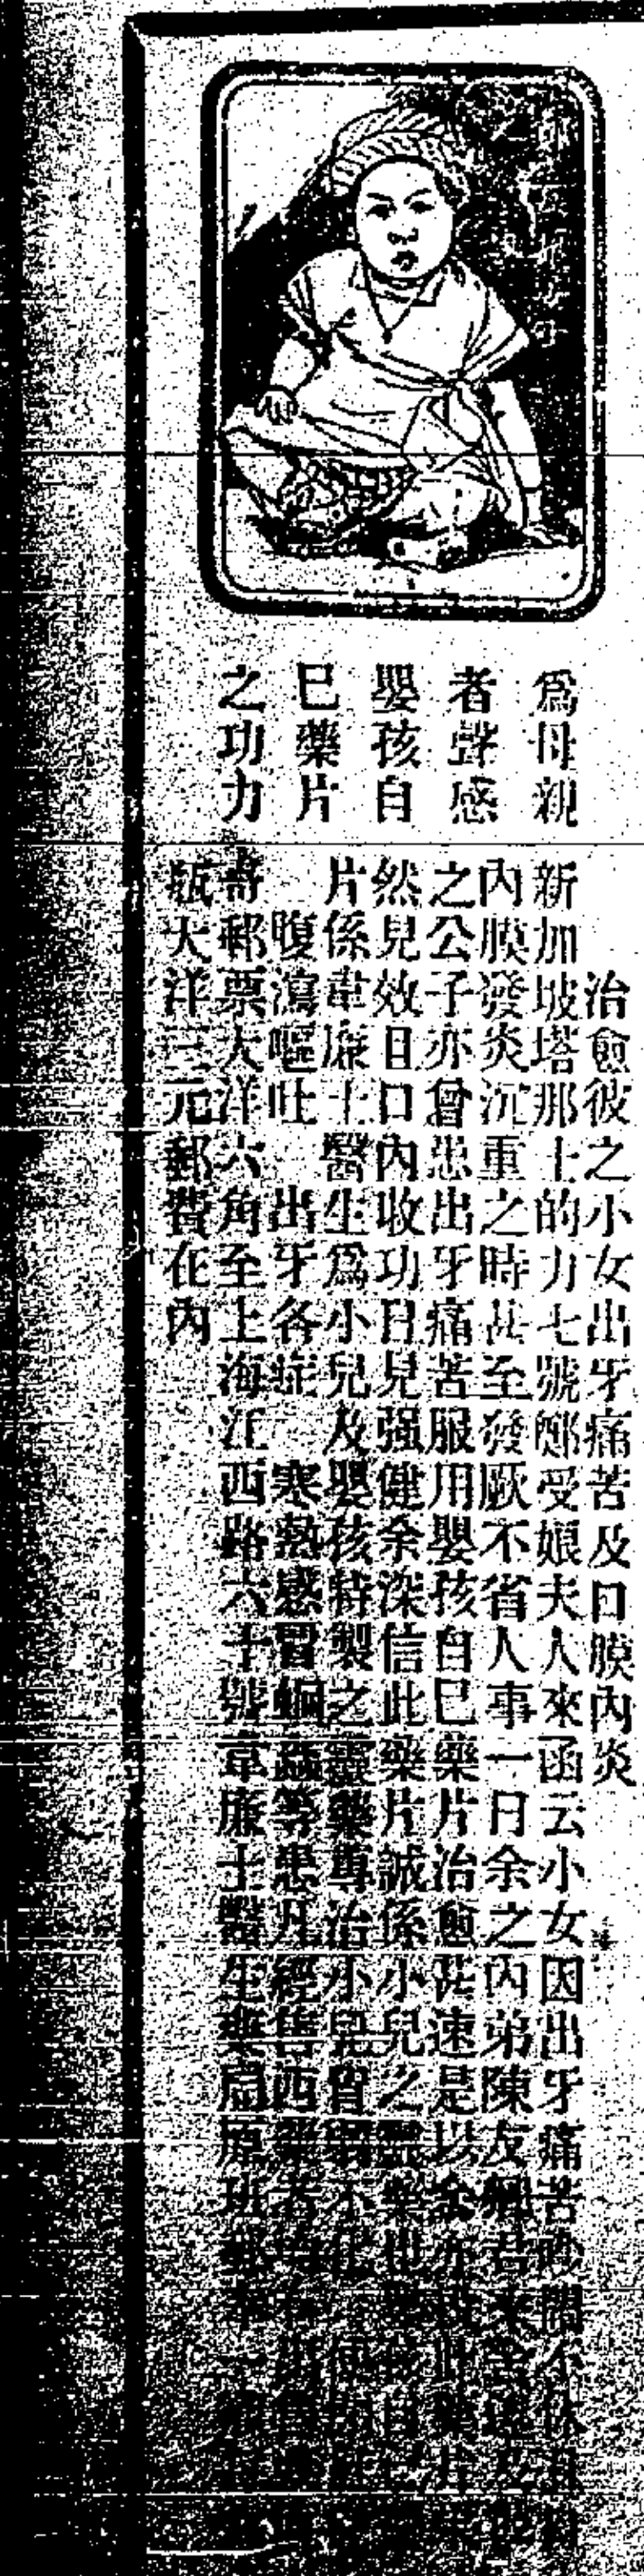 為母親
者聲感
嬰孩自
巳藥片
之功力
治愈彼之小女出牙痛苦及口膜內炎
新加坡塔那士的力七號鄭受娘夫人來函云小女因出牙痛苦吵鬧不休
內膜發炎沉重之時甚至發厥不省人事一日余之內弟陳友
之公子亦曾患出牙痛苦服用嬰孩自巳藥片治愈甚速是以余亦
然見效日口內收功日見强健余深信此藥片誠係小兒之靈藥也嬰孩自巳
片係韋廉士醫生為小兒及嬰孩特製之靈藥專治小兒胃弱不化
腹瀉嘔吐 出牙各症 寒熱感冒蛔蟲等患凡經售西藥者均有
寄郵票大洋六角至上海江西路六十號韋廉士醫生藥局原班郵奉一
瓶大洋三元郵費在內